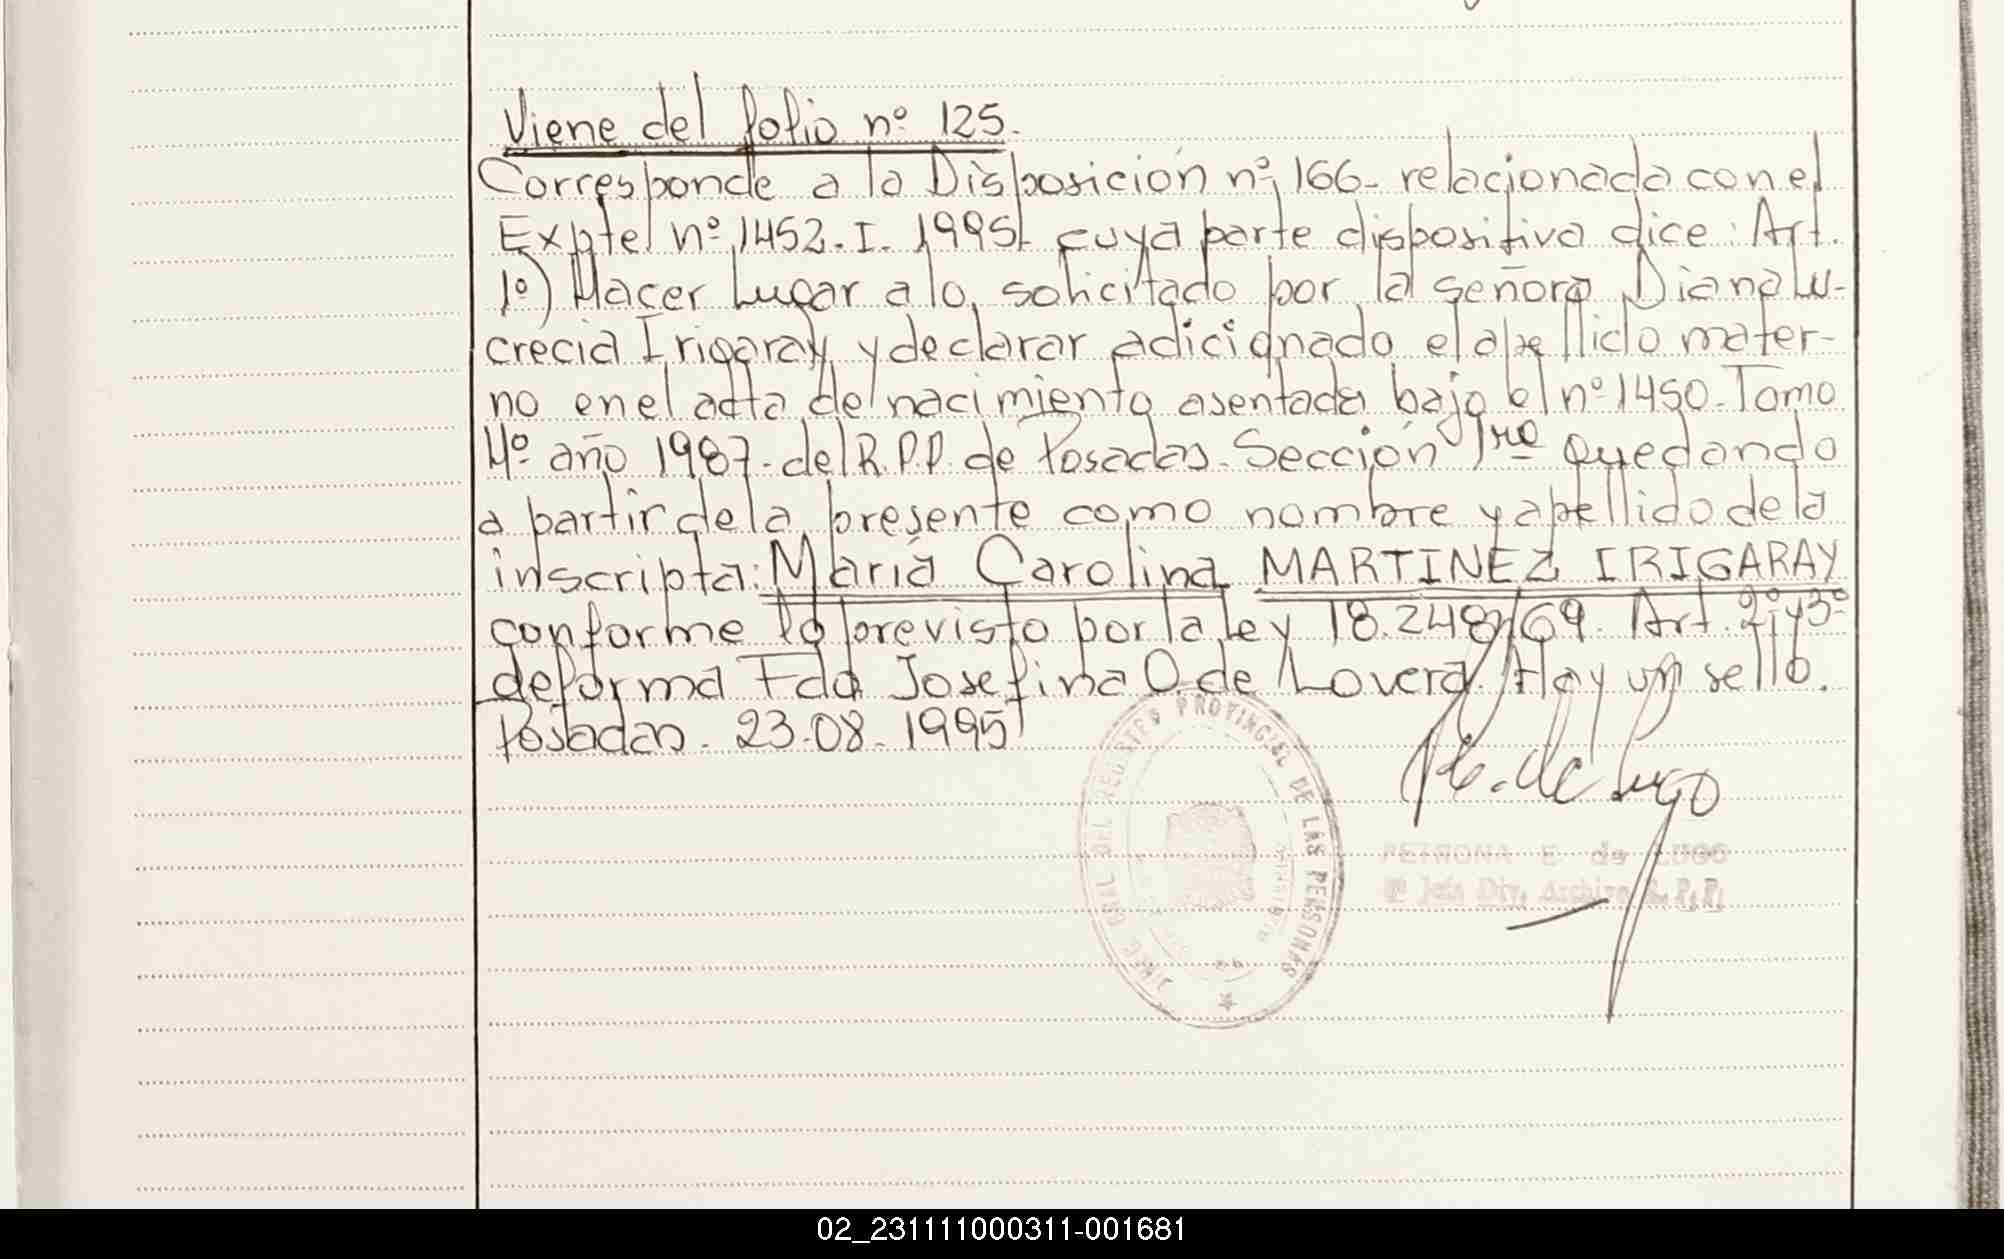 Viene del folio nº 125.
Corresponde a la Disposición nº 166- relacionada con el
Expte nº 1452.I. 1995 cuya parte dispositiva dice: Art.
1º) Hacer Lugar a lo solicitado por la señora Diana Lu-
crecia Irigaray y declarar adicionado el apellido mater-
no en el acta de nacimiento asentada bajo el nº 1450-Tomo
4º año 1987-del R.P.P. de Posadas-Sección 1ra quedando
a partir de la presente como nombre y apellido de la
inscripta: María Carolina MARTINEZ IRIGARAY
conforme lo previsto por la ley 18.248/69. Art. 2º y 3º
de forma Fdo Josefina O. de Lovera. Hay un sello.
Posadas. 23-08-1995
DIREC. GRAL. DEL REGISTRO PROVINCIAL DE LAS PERSONAS
de Lugo
PETRONA E. de LUGO
Jefa Div. Archivo R.P.P.
02_231111000311-001681